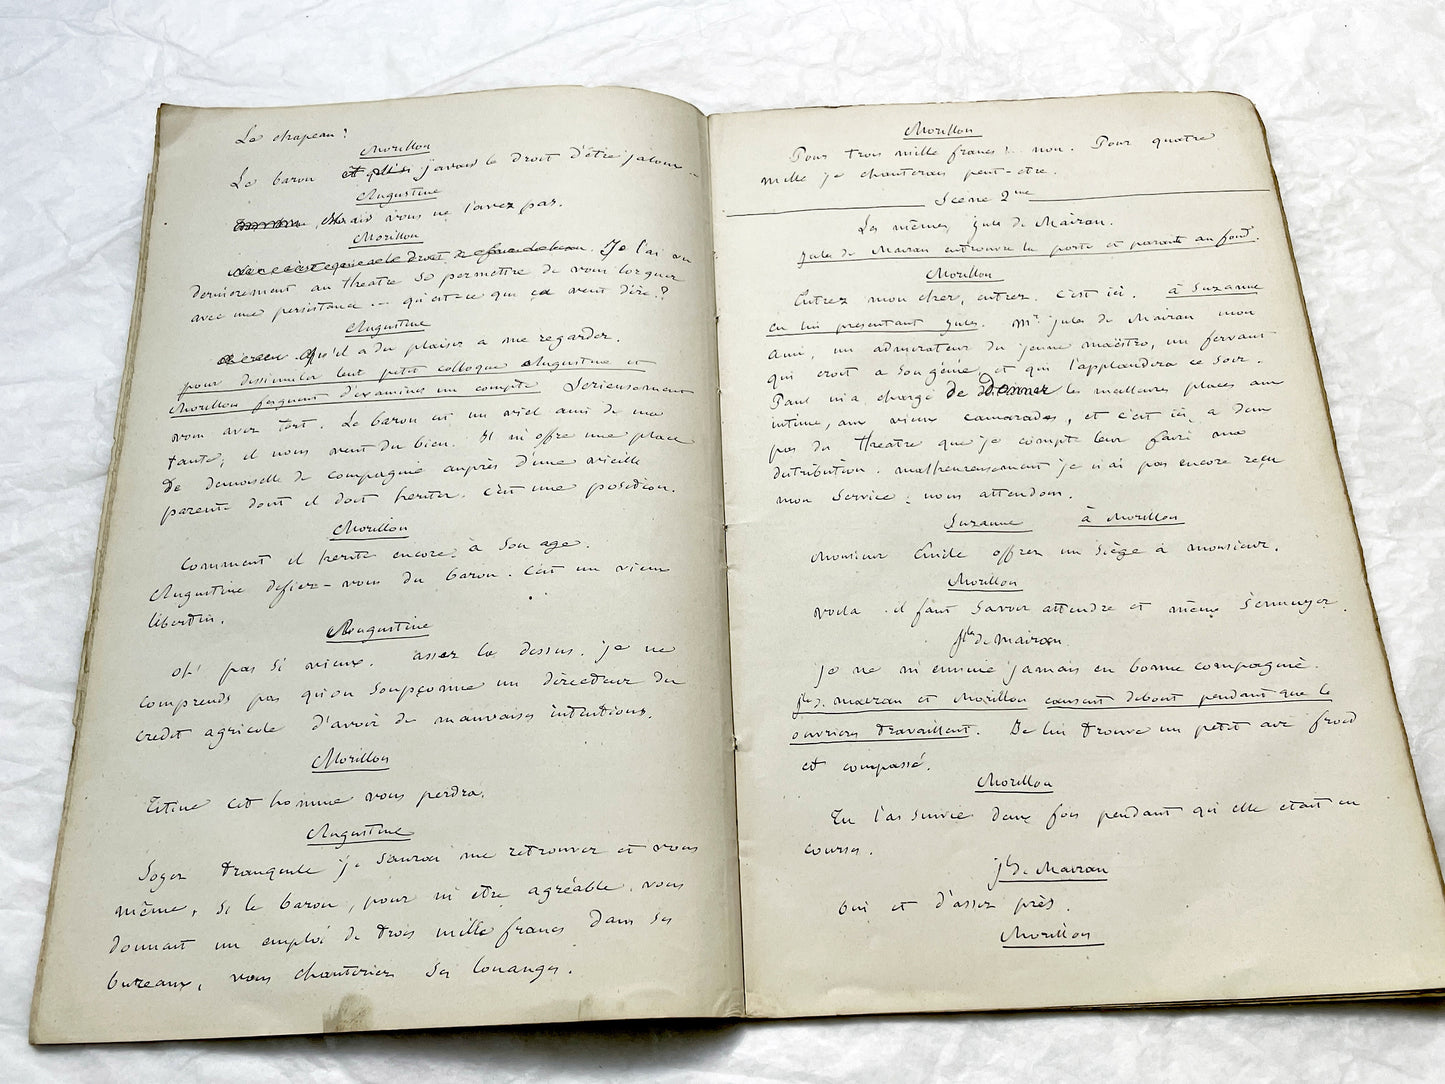 Le chapeau?
Morillon
Le baron et s'il si j'avais le droit d'être jaloux –
Augustine
Mais vous ne l'avez pas.
Morillon
le droit de Je l'ai vu
dernièrement au theatre se permettre de vous lorgner
avec une persistance ... qu'est-ce que ça veut dire?
Augustine
Qu'il a du plaisir a me regarder.
pour dissimuler leur petit colloque Augustine et
Morillon feignent d'examiner un compte Serieusement
vous avez tort. Le baron est un vieil ami de ma
tante, il nous veut du bien. Il m'offre une place
de demoiselle de compagnie auprès d'une vieille
parente dont il doit heriter. C'est une position.
Morillon
Comment il herite encore, à son age.
Augustine defiez-vous du baron. C'est un vieux
libertin.
Augustine
oh! pas si vieux. assez la dessus. je ne
comprends pas qu'on soupçonne un directeur du
credit agricole d'avoir de mauvaises intentions.
Morillon
Titine cet homme vous perdra.
Augustine
Soyez tranquille je saurai me retrouver et vous
même, si le baron, pour m'etre agréable, vous
donnait un emploi de trois mille francs dans ses
bureaux, vous chanteriez ses louanges.
Morillon
Pour trois mille francs: non. Pour quatre
mille je chanterais peut-etre.
Scène 2me
Les mêmes Jules de Mairan.
Jules de Mairan entrouvre la porte et parait au fond.
Morillon
Entrez mon cher, entrez. C'est ici. à Suzanne
en lui presentant Jules. Mr Jules de Mairan mon
ami, un admirateur du jeune maëstro, un fervant
qui croit a son génie et qui l'applaudira ce soir.
Paul m'a chargé de donner les meilleures places aux
intimes, aux vieux camarades, et c'est ici, a deux
pas du theatre que je compte leur faire ma
distribution. malheureusement je n'ai pas encore reçu
mon service; nous attendons.
Suzanne à Morillon
Monsieur Emile offrez un siège à monsieur.
Morillon
voila. il faut savoir attendre et même s'ennuyer.
Jles de Mairan
Je ne m'ennuie jamais en bonne compagnie.
Jles d. Mairan et Morillon causent debout pendant que les
ouvriers travaillent. Je lui trouve un petit air froid
et compassé.
Morillon
Tu l'as suivie deux fois pendant qu'elle etait en
courses.
Jles de Mairan
Oui et d'assez près.
Morillon